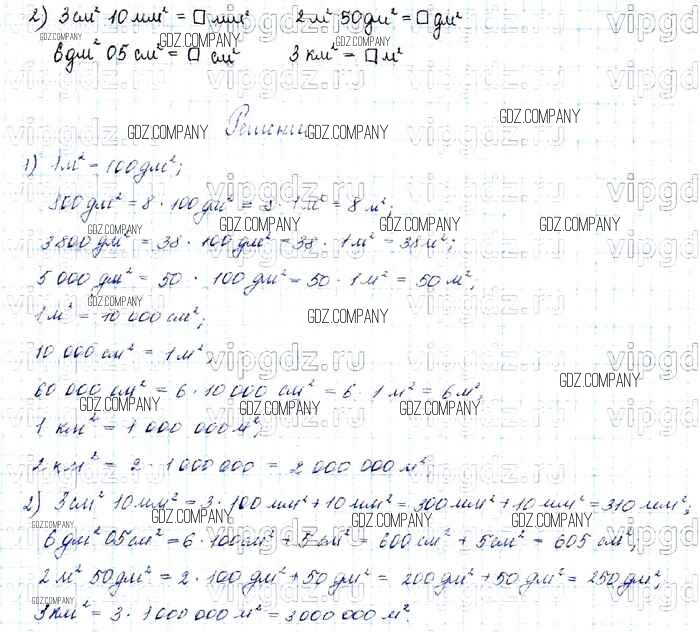 2) 3 см² 10 мм² = □ мм² 2 м² 50 дм² = □ дм²
6 дм² 05 см² = □ см² 3 км² = □ м²
Решение
1) 1 м² = 100 дм²;
800 дм² = 8 · 100 дм² = 8 · 1 м² = 8 м²;
3800 дм² = 38 · 100 дм² = 38 · 1 м² = 38 м²;
5 000 дм² = 50 · 100 дм² = 50 · 1 м² = 50 м²;
1 м² = 10 000 см²;
10 000 см² = 1 м²,
60 000 см² = 6 · 10 000 см² = 6 · 1 м² = 6 м²,
1 км² = 1 000 000 м²;
2 км² = 2 · 1 000 000 = 2 000 000 м².
2) 3 см² 10 мм² = 3 · 100 мм² + 10 мм² = 300 мм² + 10 мм² = 310 мм²;
6 дм² 05 см² = 6 · 100 см² + 5 см² = 600 см² + 5 см² = 605 см²;
2 м² 50 дм² = 2 · 100 дм² + 50 дм² = 200 дм² + 50 дм² = 250 дм²;
3 км² = 3 · 1 000 000 м² = 3 000 000 м².
GDZ.COMPANY
vipgdz.ru